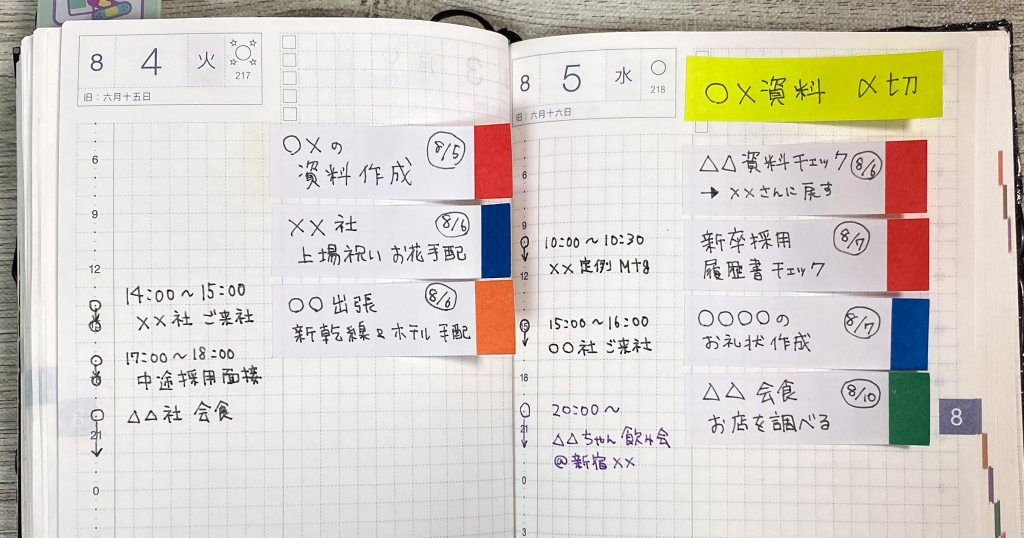 8 4 火
217
旧：六月十五日
6
9
12
15
18
21
0
14:00～15:00
××社 ご来社
17:00～18:00
中途採用面接
△△社 会食
○×の 8/5
資料作成
××社 8/6
上場祝い お花手配
○○出張 8/6
新乾線&ホテル手配
8 5 水
218
旧：六月十六日
6
9
12
15
18
21
0
3
10:00～10:30
××定例Mtg
15:00～16:00
○○社 ご来社
20:00～
△△ちゃん飲み会
@新宿××
○×資料 〆切
△△資料チェック 8/6
→ ××さんに戻す
新卒採用 8/7
履歴書チェック
○○○○の 8/7
お礼状作成
△△会食 8/10
お店を調べる
8